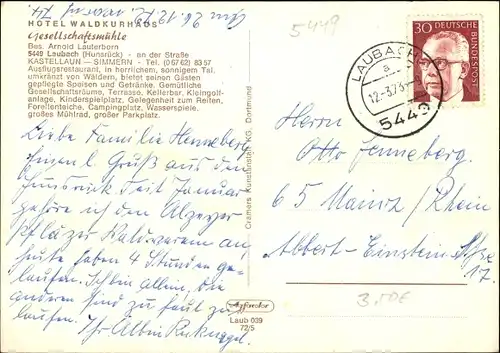 5449
HOTEL WALDKURHAUS
Gesellschaftsmühle
Bes. Arnold Lauterborn
5449 Laubach (Hunsrück) - an der Straße
KASTELLAUN — SIMMERN - Tel. (0 67 62) 83 57
Ausflugsrestaurant, in herrlichem, sonnigem Tal,
umkränzt von Wäldern, bietet seinen Gästen
gepflegte Speisen und Getränke. Gemütliche
Gesellschaftsräume, Terrasse, Kellerbar, Kleingolf-
anlage, Kinderspielplatz, Gelegenheit zum Reiten,
Forellenteiche, Campingplatz, Wasserspiele,
großes Mühlrad, großer Parkplatz.
Liebe Familie Henneberg
Einen l. Gruß aus dem
Hunsrück. Seit Januar
gehöre ich den Alzeyer
zu Waldwarem an,
heute haben 4 Stunden ge-
laufen. Ich bin allein, die
anderen sind zu faul zu
laufen. Ihr Albin
Cramers Kunstanstalt KG, Dortmund
Laub 039
72/5
30 DEUTSCHE BUNDESPOST
LAUBACH
a
5449
Herrn
Otto Henneberg
65 Mainz / Rhein
Albert-Einstein-Str.
17.